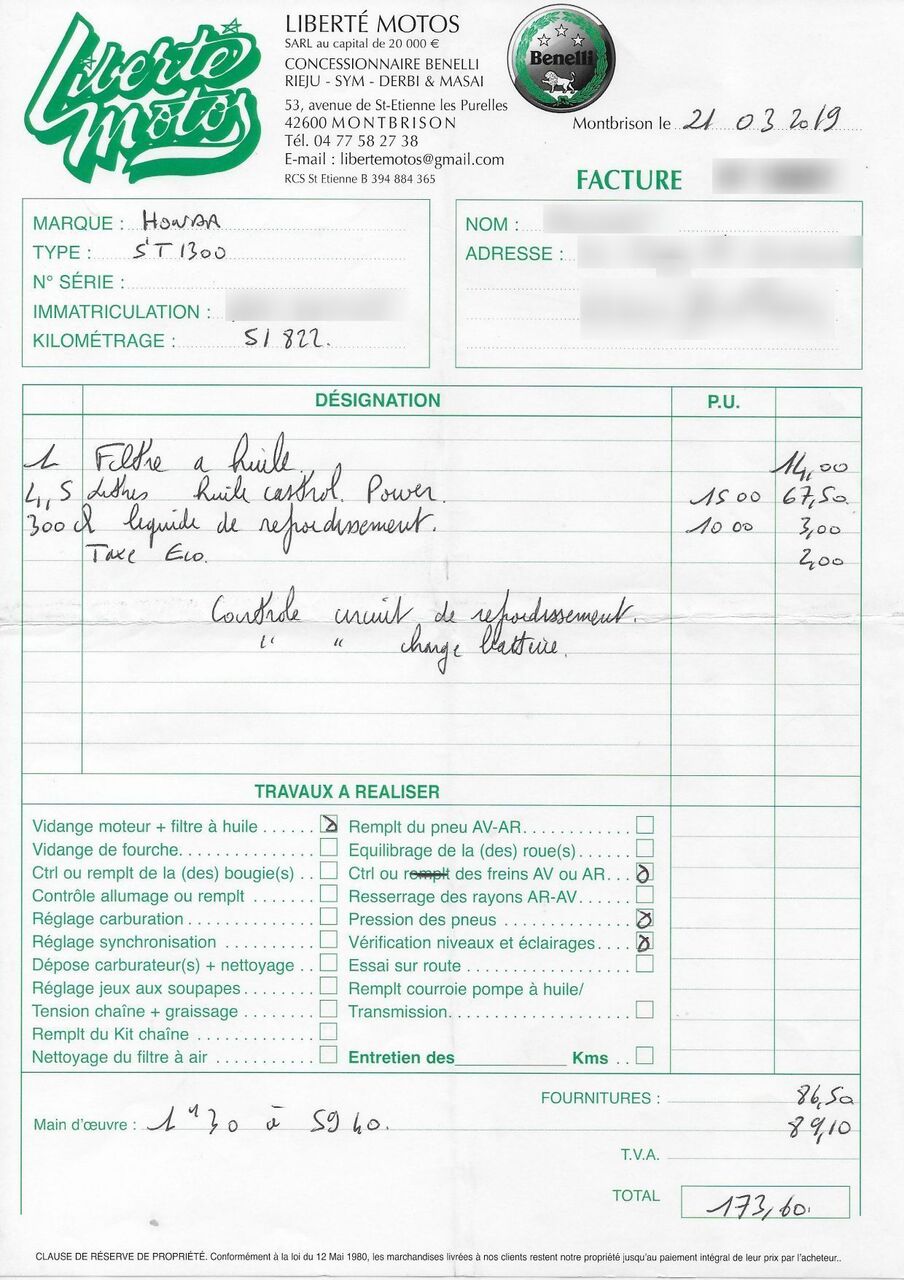 Liberté Motos
LIBERTÉ MOTOS
SARL au capital de 20 000 €
CONCESSIONNAIRE BENELLI
RIEJU - SYM - DERBI & MASAI
53, avenue de St-Etienne les Purelles
42600 MONTBRISON
Tél. 04 77 58 27 38
E-mail : libertemotos@gmail.com
RCS St Etienne B 394 884 365
Benelli
Montbrison le 21 03 2019
FACTURE
MARQUE : HONDA
TYPE : ST 1300
N° SÉRIE :
IMMATRICULATION :
KILOMÉTRAGE : 51 822.
NOM :
ADRESSE :
DÉSIGNATION P.U.
1 Filtre a huile 14,00
4,5 Litres huile castrol Power. 15 00 67,50
300 liquide de refroidissement. 10 00 3,00
Taxe Eco. 2,00
Controle circuit de refroidissement.
" " charge batterie.
TRAVAUX A REALISER
Vidange moteur + filtre à huile
Vidange de fourche
Ctrl ou remplt de la (des) bougie(s)
Contrôle allumage ou remplt
Réglage carburation
Réglage synchronisation
Dépose carburateur(s) + nettoyage
Réglage jeux aux soupapes
Tension chaîne + graissage
Remplt du Kit chaîne
Nettoyage du filtre à air
Remplt du pneu AV-AR
Equilibrage de la (des) roue(s)
Ctrl ou remplt des freins AV ou AR
Resserrage des rayons AR-AV
Pression des pneus
Vérification niveaux et éclairages
Essai sur route
Remplt courroie pompe à huile/
Transmission
Entretien des Kms
FOURNITURES : 86,50
Main d'œuvre : 1 H 30 à 59 40. 89,10
T.V.A.
TOTAL 173,60.
CLAUSE DE RÉSERVE DE PROPRIÉTÉ. Conformément à la loi du 12 Mai 1980, les marchandises livrées à nos clients restent notre propriété jusqu'au paiement intégral de leur prix par l'acheteur..